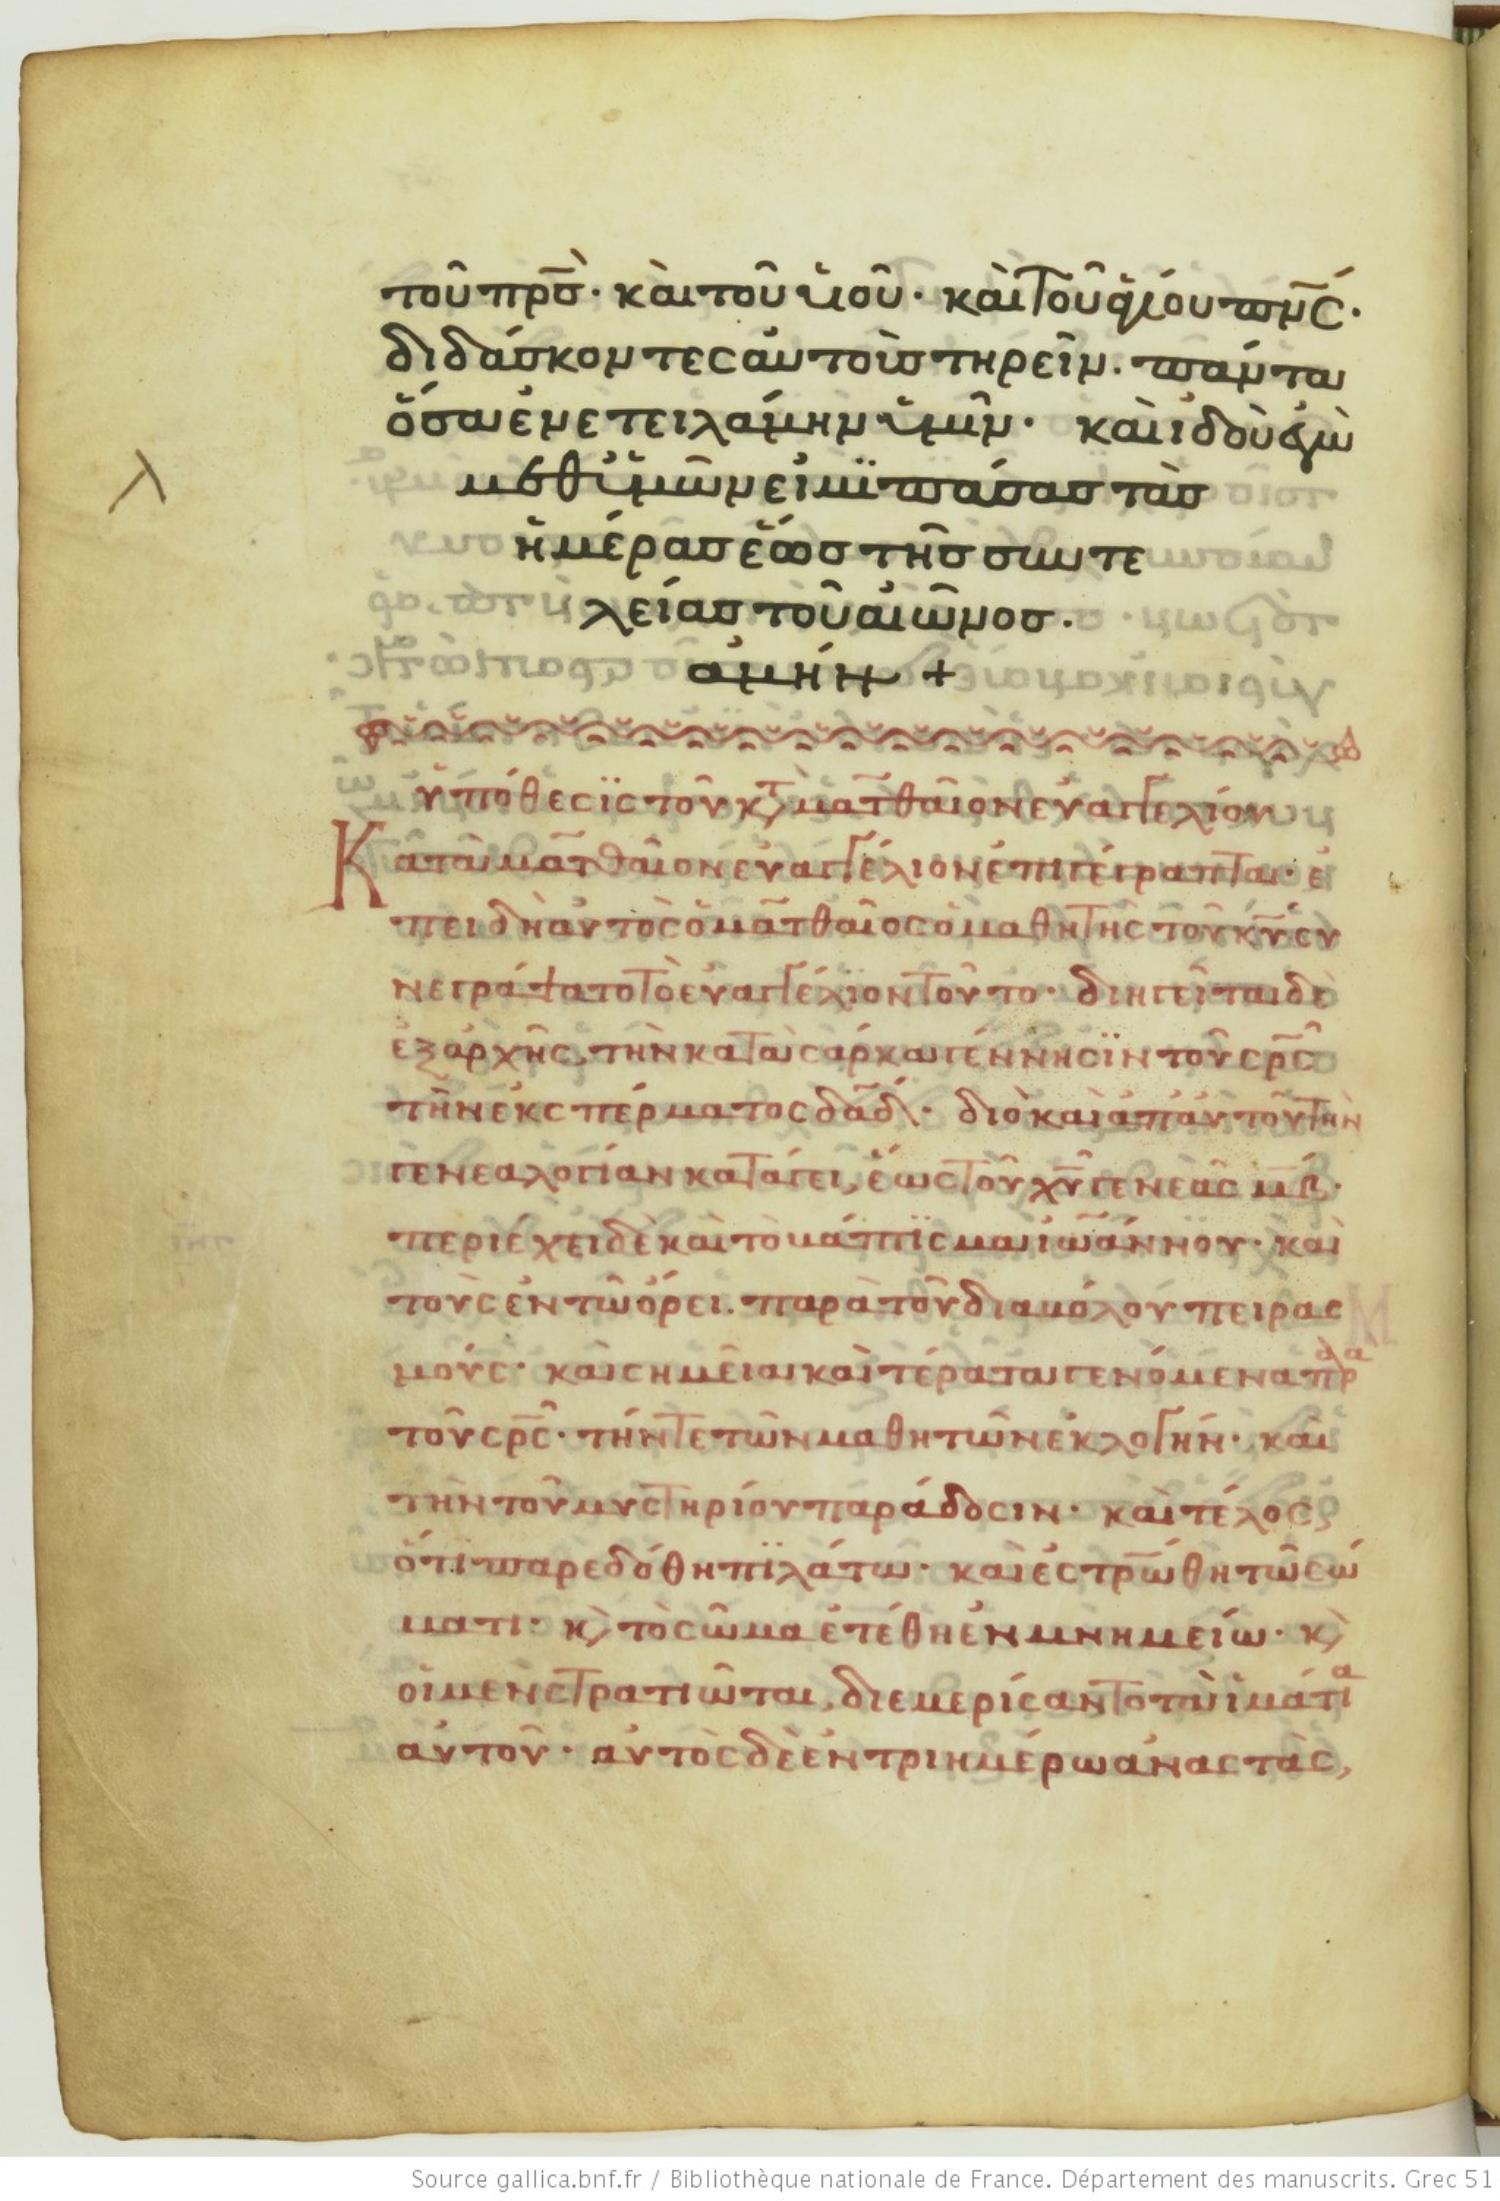 τοῦ πρ̅σ̀· καὶ τοῦ ὑιοῦ· καὶ τοῦ ἁγίου πν̅ς·
διδάσκοντες αὐτοὺσ τηρεῖν. πάντα
ὅσα ἐνετειλάμην ὑμῖν· καὶ ἰδοὺ ἐγὼ
μεθ ὑμῶν εἰμϊ πάσασ τὰσ
ἡμέρασ ἕωσ τῆσ συντε
λείασ τοῦ αἰῶνοσ.
ἀμήν +
ὑπόθεσϊς τοῦ κτ̀ ματθαῖον εὐαγγελίου
Κατὰ ματθαῖον εὐαγγέλιον ἐπιγέγραπται· ἐ
πειδὴ αὐτὸς ὁ ματθαῖος ὁ μαθητὴς τοῦ κ̅υ̅ συ
νεγράψατο τὸ εὐαγγέλϊον τοῦτο· διηγεῖται δὲ
ἐξ ἀρχῆς, τὴν κατὰ σάρκα γέννησϊν τοῦ σρ̅ς
τὴν ἐκ σπέρματος δα̅δ· διὸ καὶ ἀπ' αὐτοῦ τὴν
γενεαλογίαν κατάγει, ἕως τοῦ χ̅υ̅ γενεὰς μβ̅·
περιέχει δὲ καὶ τὸ βάπτϊσμα ἰωάννου· καὶ
τοὺς ἐν τῶ ὄρει. παρὰ τοῦ διαβόλου πειρας
μούς· καὶ σημεῖα καὶ τέρατα γενόμενα πρ
τοῦ σρ̅ς· τήν τε τῶν μαθητῶν ἐκλογήν· καὶ
τὴν τοῦ μυστηρίου παράδοσιν· καὶ τέλος
ὅτι παρεδόθη πϊλάτω· καὶ ἐστρ̅ώθη τῶ σώ
ματι· κ̀ τὸ σῶμα ἐτέθη ἐν μνημείω· κ̀
οἱ μὲν στρατιῶται, διεμερίσαντο τὰ ἱμάτια
αὐτοῦ· αὐτὸς δὲ ἐν τριημέρω ἀναστὰς,
λ
Source gallica.bnf.fr / Bibliothèque nationale de France. Département des manuscrits. Grec 51